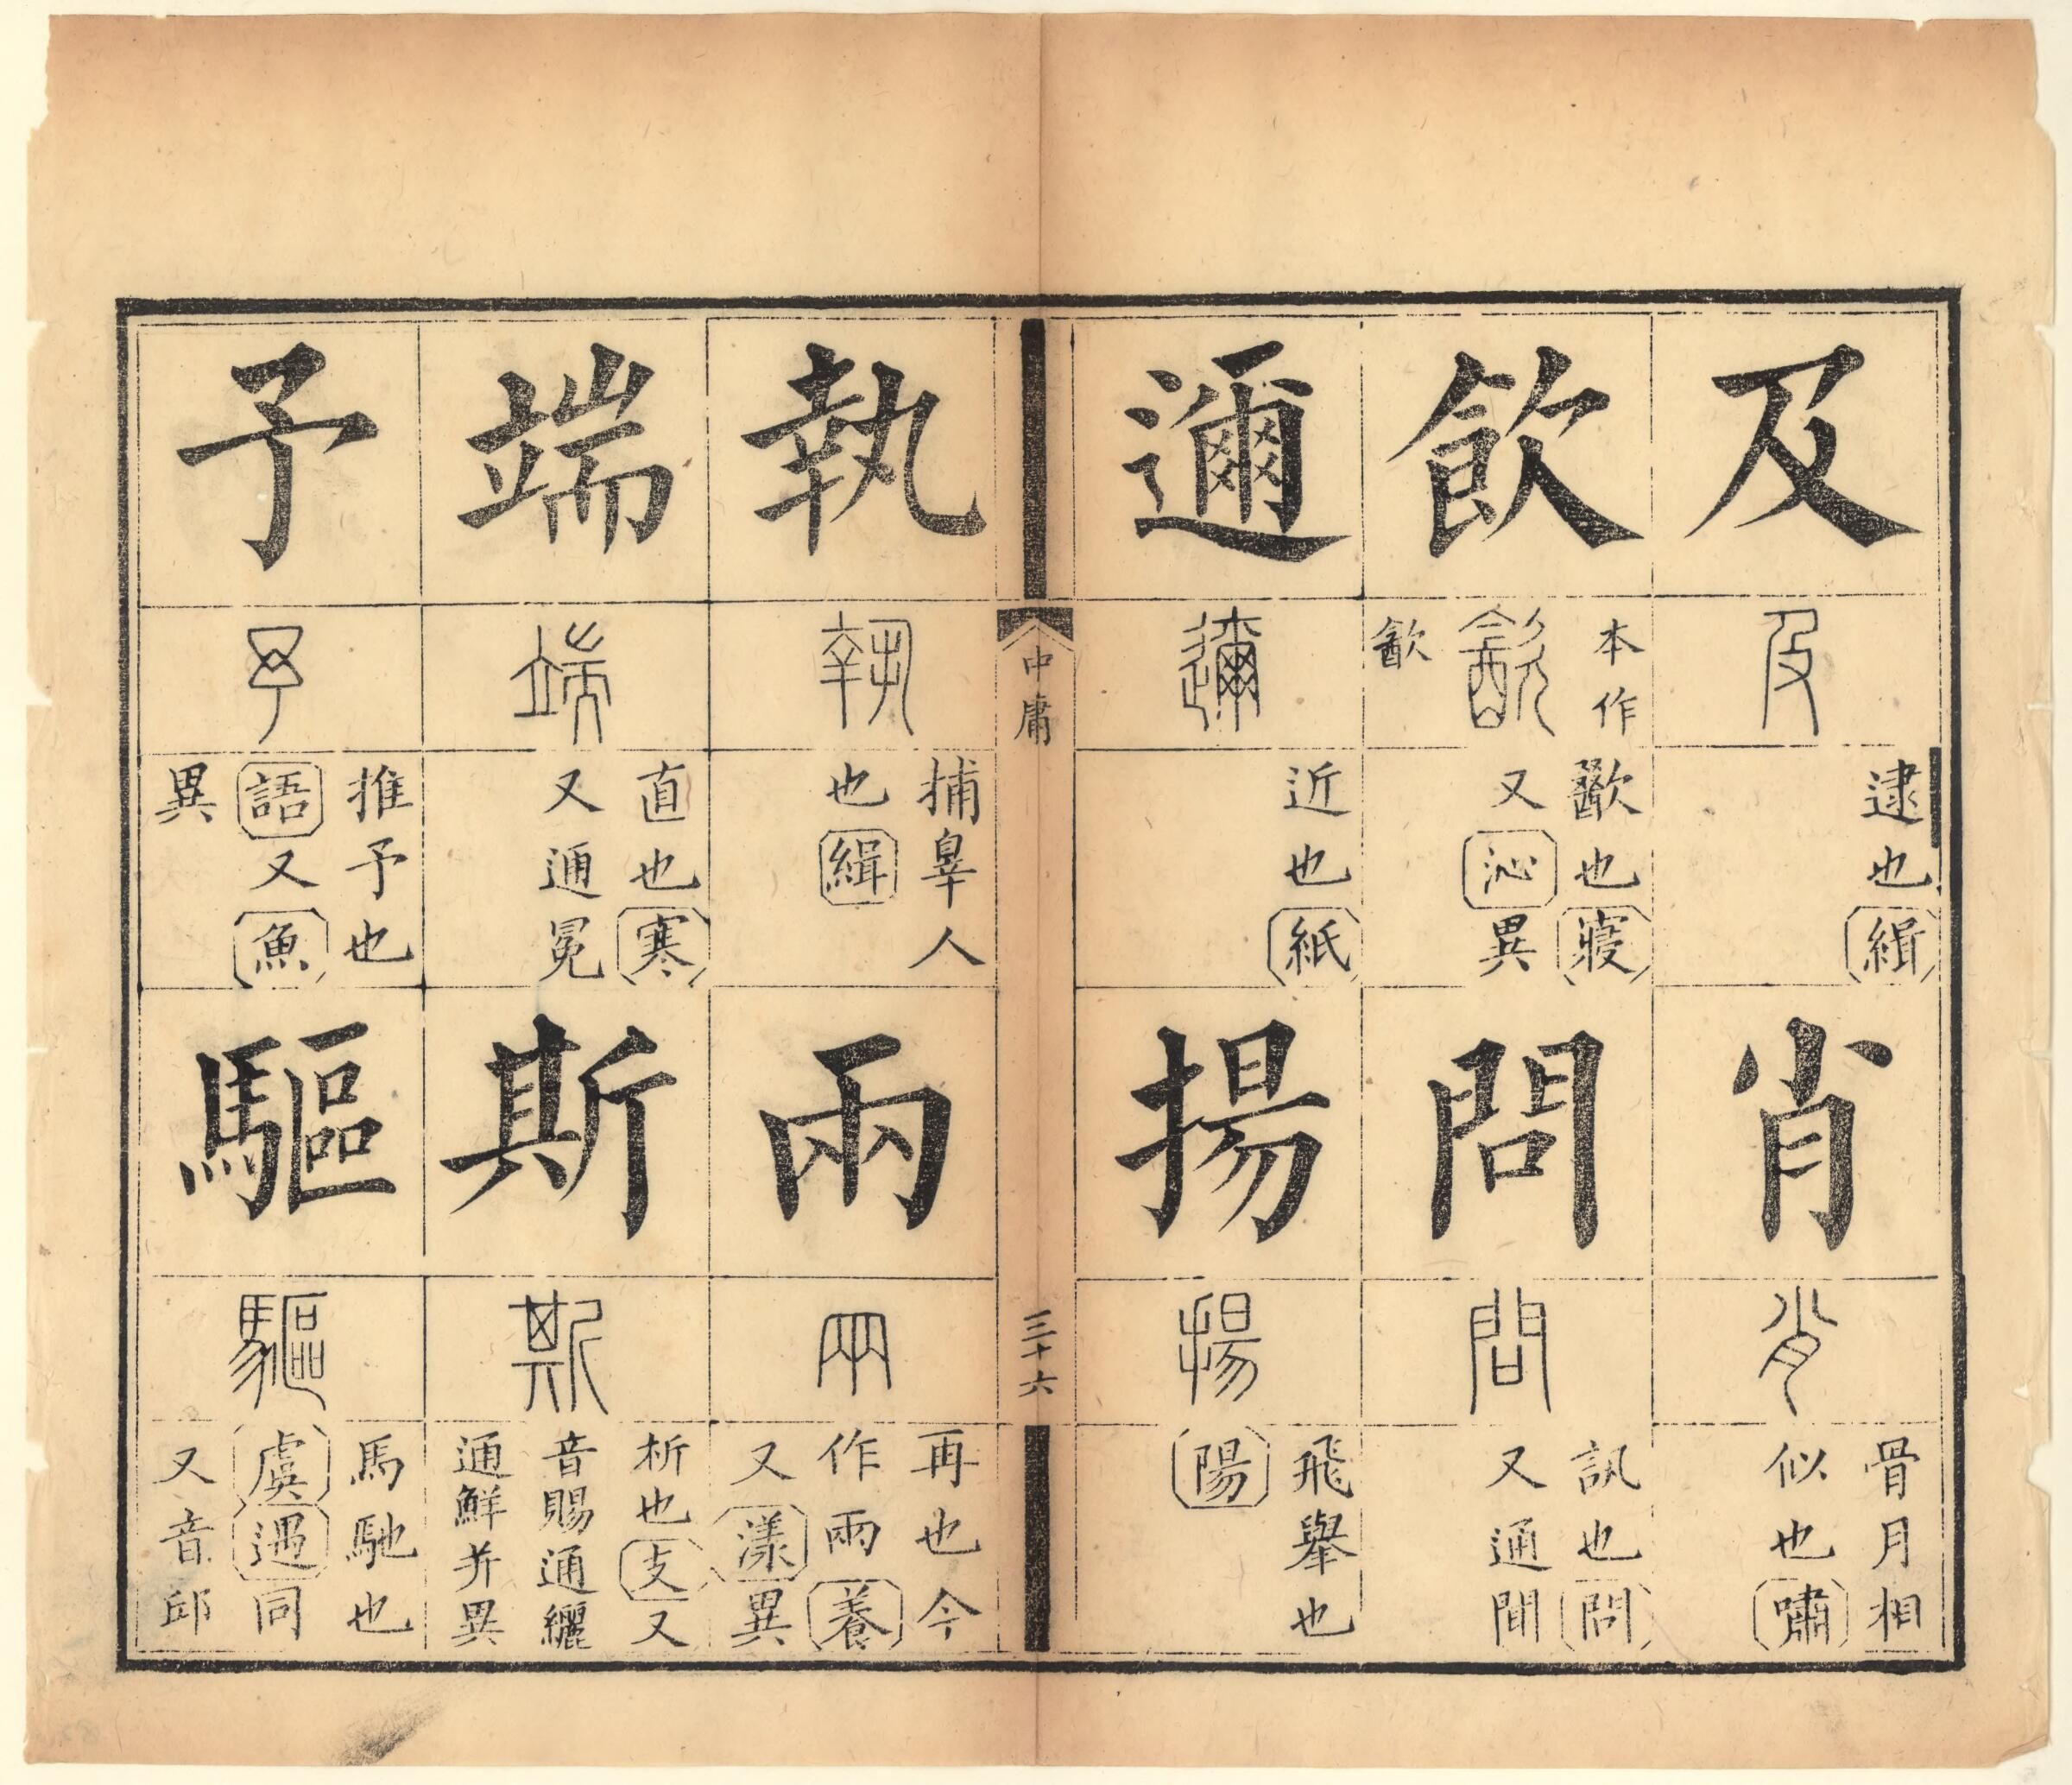 及
及
逮也緝
肖
肖
骨月相
似也嘯
飲
本作
㱃
㱃
歠也寢
又沁異
問
問
訊也問
又通聞
邇
邇
近也紙
揚
揚
飛舉也
陽
中庸
三十六
執
執
捕辠人
也緝
兩
㒳
再也今
作兩養
又漾異
端
端
直也寒
又通冕
斯
斯
析也支又
音賜通纚
通鮮并異
予
予
推予也
語又魚
異
驅
驅
馬馳也
虞遇同
又音邱